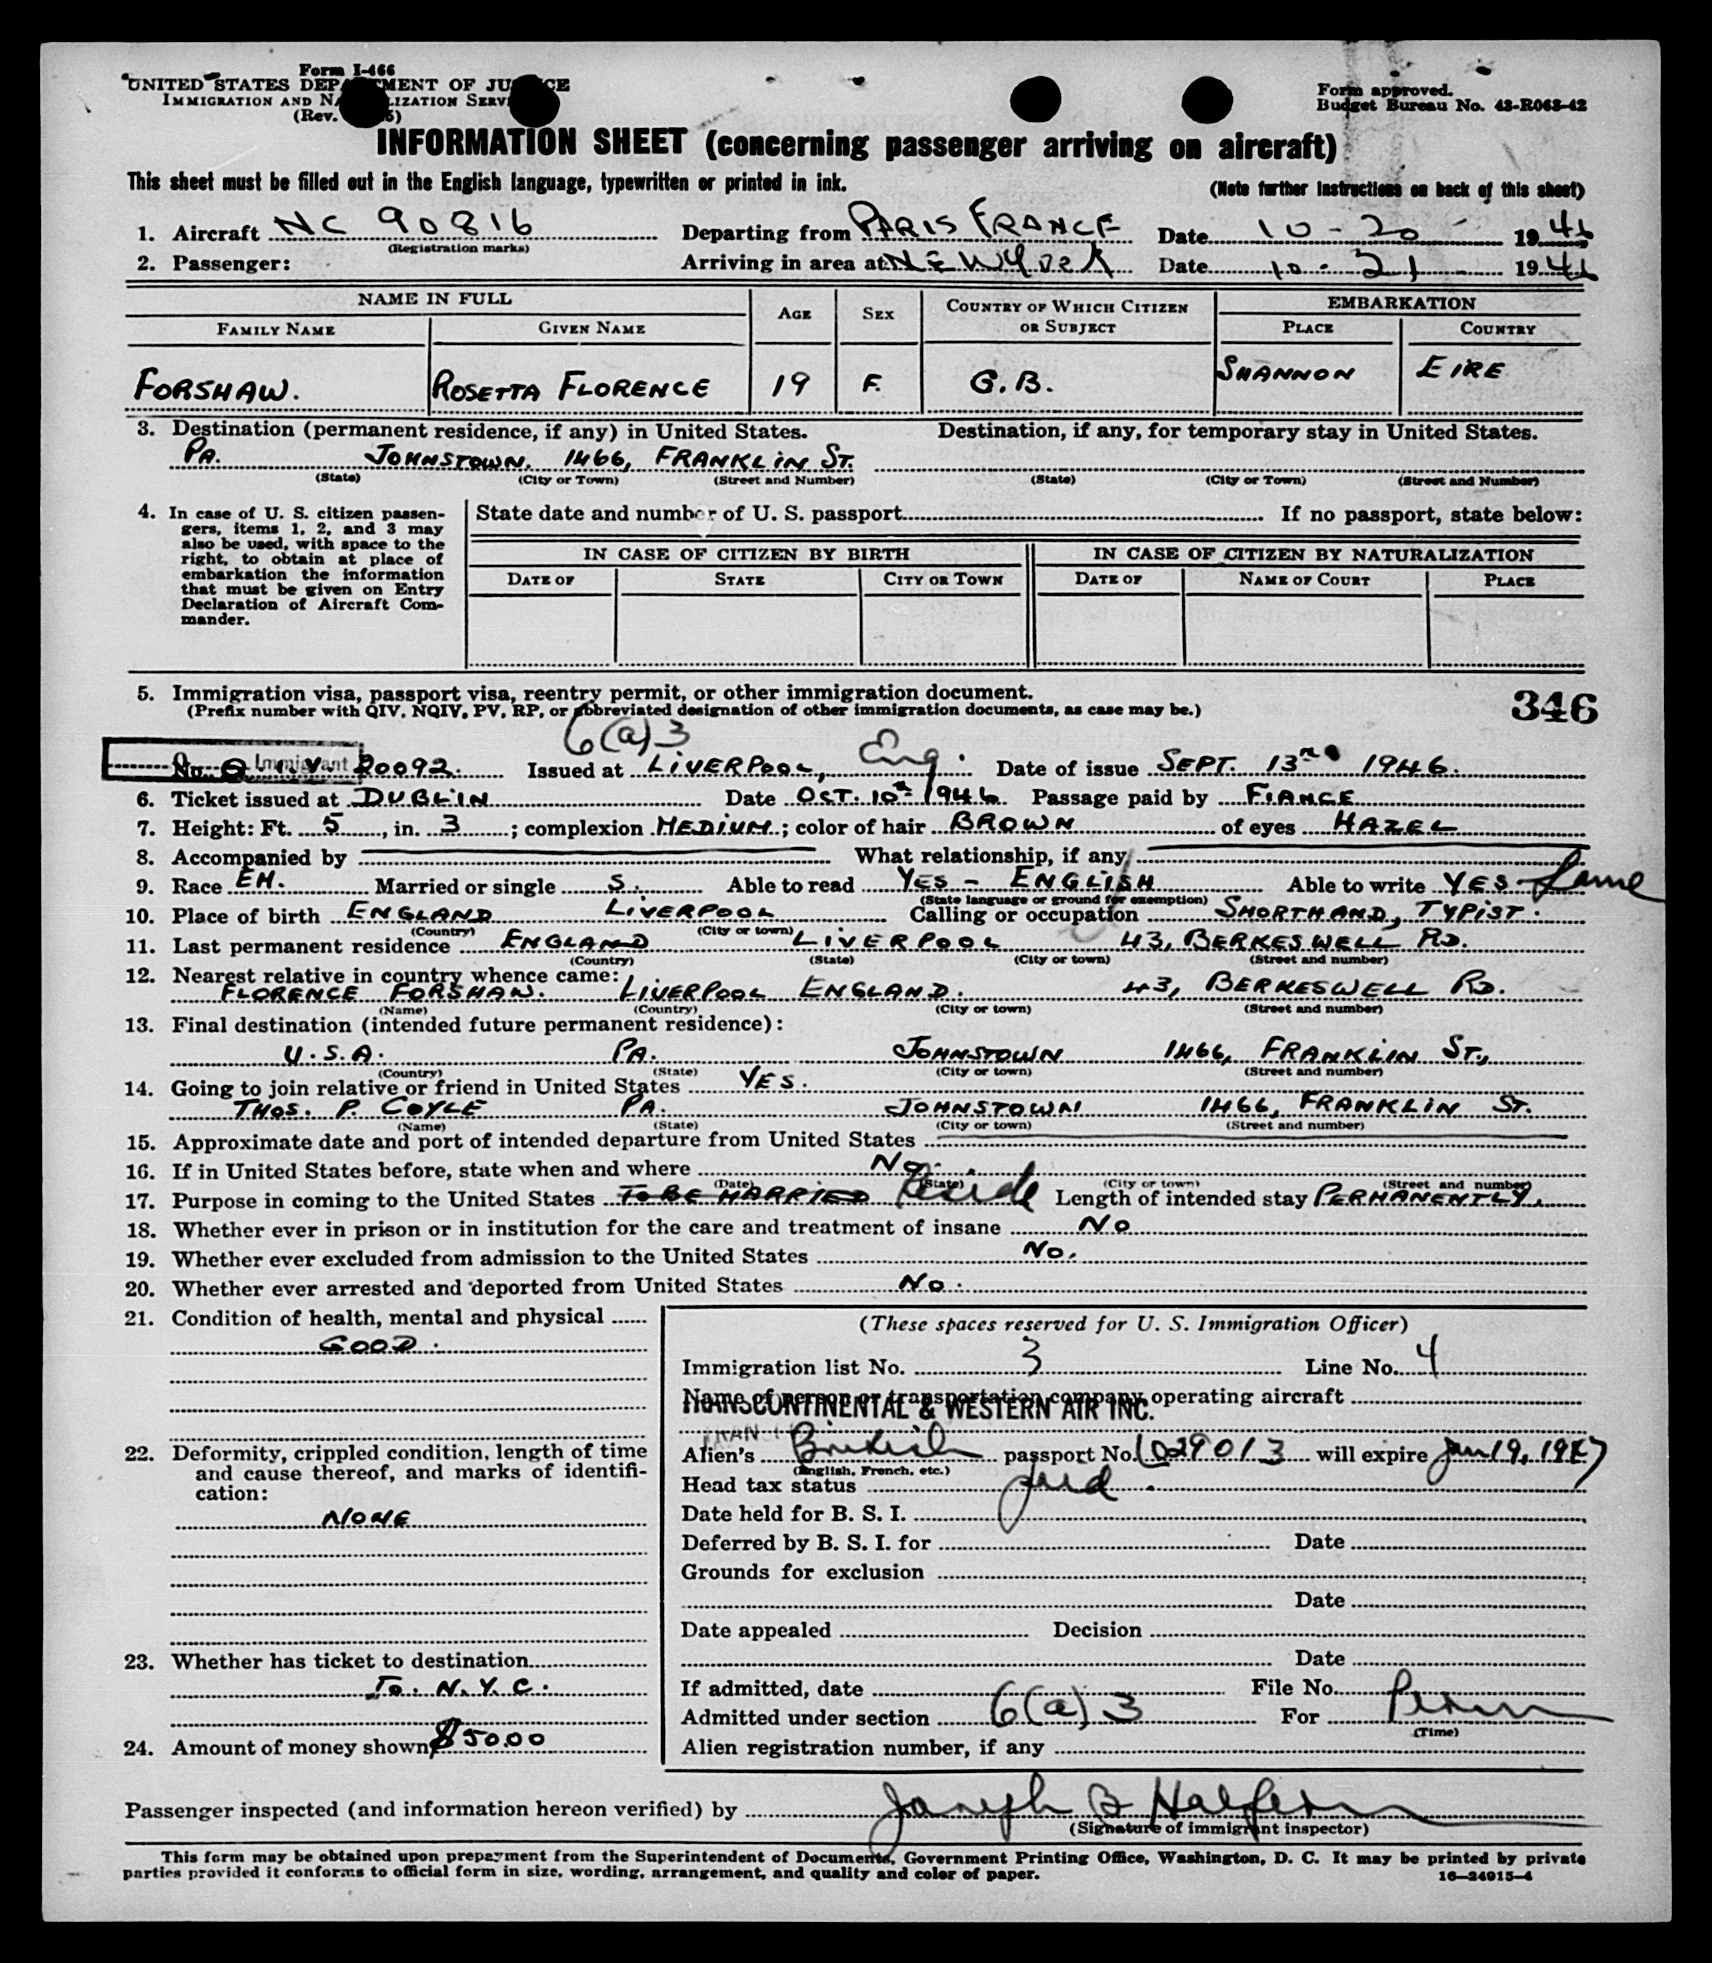 Form I-466
UNITED STATES DEPARTMENT OF JUSTICE
IMMIGRATION AND NATURALIZATION SERVICE
(Rev.
Form approved.
Budget Bureau No. 43-R063-42
INFORMATION SHEET (concerning passenger arriving on aircraft)
This sheet must be filled out in the English language, typewritten or printed in ink.
(Note further instructions on back of this sheet)
1. Aircraft NC 90816 Departing from PARIS FRANCE Date 10-20- 1946
(Registration marks)
2. Passenger: Arriving in area at NEW YORK Date 10-21 1946
NAME IN FULL AGE SEX COUNTRY OF WHICH CITIZEN OR SUBJECT EMBARKATION
FAMILY NAME GIVEN NAME PLACE COUNTRY
FORSHAW. ROSETTA FLORENCE 19 F. G.B. SHANNON EIRE
3. Destination (permanent residence, if any) in United States. Destination, if any, for temporary stay in United States.
PA. JOHNSTOWN. 1466, FRANKLIN ST.
(State) (City or Town) (Street and Number) (State) (City or Town) (Street and Number)
4. In case of U. S. citizen passen-
gers, items 1, 2, and 3 may
also be used, with space to the
right, to obtain at place of
embarkation the information
that must be given on Entry
Declaration of Aircraft Com-
mander.
State date and number of U. S. passport If no passport, state below:
IN CASE OF CITIZEN BY BIRTH IN CASE OF CITIZEN BY NATURALIZATION
DATE OF STATE CITY OR TOWN DATE OF NAME OF COURT PLACE
5. Immigration visa, passport visa, reentry permit, or other immigration document.
(Prefix number with QIV, NQIV, PV, RP, or abbreviated designation of other immigration documents, as case may be.)
346
6(a)3
No. Q I.V. Immigrant 20092. Issued at LIVERPOOL, Eng. Date of issue SEPT. 13 1946.
6. Ticket issued at DUBLIN Date OCT. 10th 1946 Passage paid by FIANCE
7. Height: Ft. 5, in. 3; complexion MEDIUM; color of hair BROWN of eyes HAZEL
8. Accompanied by What relationship, if any
9. Race EH. Married or single S. Able to read YES - ENGLISH Able to write YES - Same
(State language or ground for exemption)
10. Place of birth ENGLAND LIVERPOOL Calling or occupation SHORTHAND, TYPIST.
(Country) (City or town)
11. Last permanent residence ENGLAND LIVERPOOL 43, BERKESWELL RD.
(Country) (State) (City or town) (Street and number)
12. Nearest relative in country whence came:
FLORENCE FORSHAW. LIVERPOOL ENGLAND. 43, BERKESWELL RD.
(Name) (Country) (City or town) (Street and number)
13. Final destination (intended future permanent residence):
U.S.A. PA. JOHNSTOWN 1466, FRANKLIN ST.,
(Country) (State) (City or town) (Street and number)
14. Going to join relative or friend in United States YES.
THOS. P. COYLE PA. JOHNSTOWN 1466, FRANKLIN ST.
(Name) (State) (City or town) (Street and number)
15. Approximate date and port of intended departure from United States
16. If in United States before, state when and where No.
(Date) (State) (City or town) (Street and number)
17. Purpose in coming to the United States TO BE MARRIED Reside Length of intended stay PERMANENTLY.
18. Whether ever in prison or in institution for the care and treatment of insane No
19. Whether ever excluded from admission to the United States No.
20. Whether ever arrested and deported from United States No.
21. Condition of health, mental and physical
GOOD.
22. Deformity, crippled condition, length of time
and cause thereof, and marks of identifi-
cation:
NONE
23. Whether has ticket to destination
To. N.Y.C.
24. Amount of money shown $50.00
(These spaces reserved for U. S. Immigration Officer)
Immigration list No. 3 Line No. 4
Name of person or transportation company operating aircraft
TRANSCONTINENTAL & WESTERN AIR INC.
Alien's British passport No. L029013 will expire Jan 19, 1947
(English, French, etc.)
Head tax status
Date held for B. S. I.
Deferred by B. S. I. for Date
Grounds for exclusion
Date
Date appealed Decision
Date
If admitted, date File No.
Admitted under section 6(a)3 For Perm
(Time)
Alien registration number, if any
Passenger inspected (and information hereon verified) by Joseph B Halpern
(Signature of immigrant inspector)
This form may be obtained upon prepayment from the Superintendent of Documents, Government Printing Office, Washington, D. C. It may be printed by private
parties provided it conforms to official form in size, wording, arrangement, and quality and color of paper.
16—24915-4